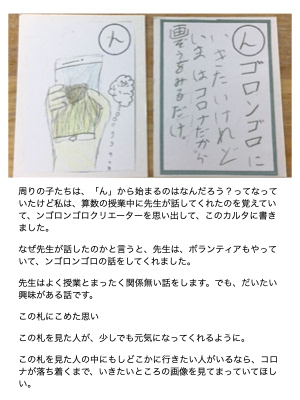 ん
ん
ンゴロンゴロに
いきたいけれど
いまはコロナだから
画ぞうをみるだけ。
周りの子たちは、「ん」から始まるのはなんだろう？ってなって
いたけど私は、算数の授業中に先生が話してくれたのを覚えてい
て、ンゴロンゴロクリエーターを思い出して、このカルタに書き
ました。
なぜ先生が話したのかと言うと、先生は、ボランティアもやって
いて、ンゴロンゴロの話をしてくれました。
先生はよく授業とまったく関係無い話をします。でも、だいたい
興味がある話です。
この札にこめた思い
この札を見た人が、少しでも元気になってくれるように。
この札を見た人の中にもしどこかに行きたい人がいるなら、コロ
ナが落ち着くまで、いきたいところの画像を見てまっていてほし
い。